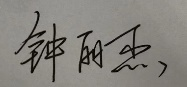 钟丽杰